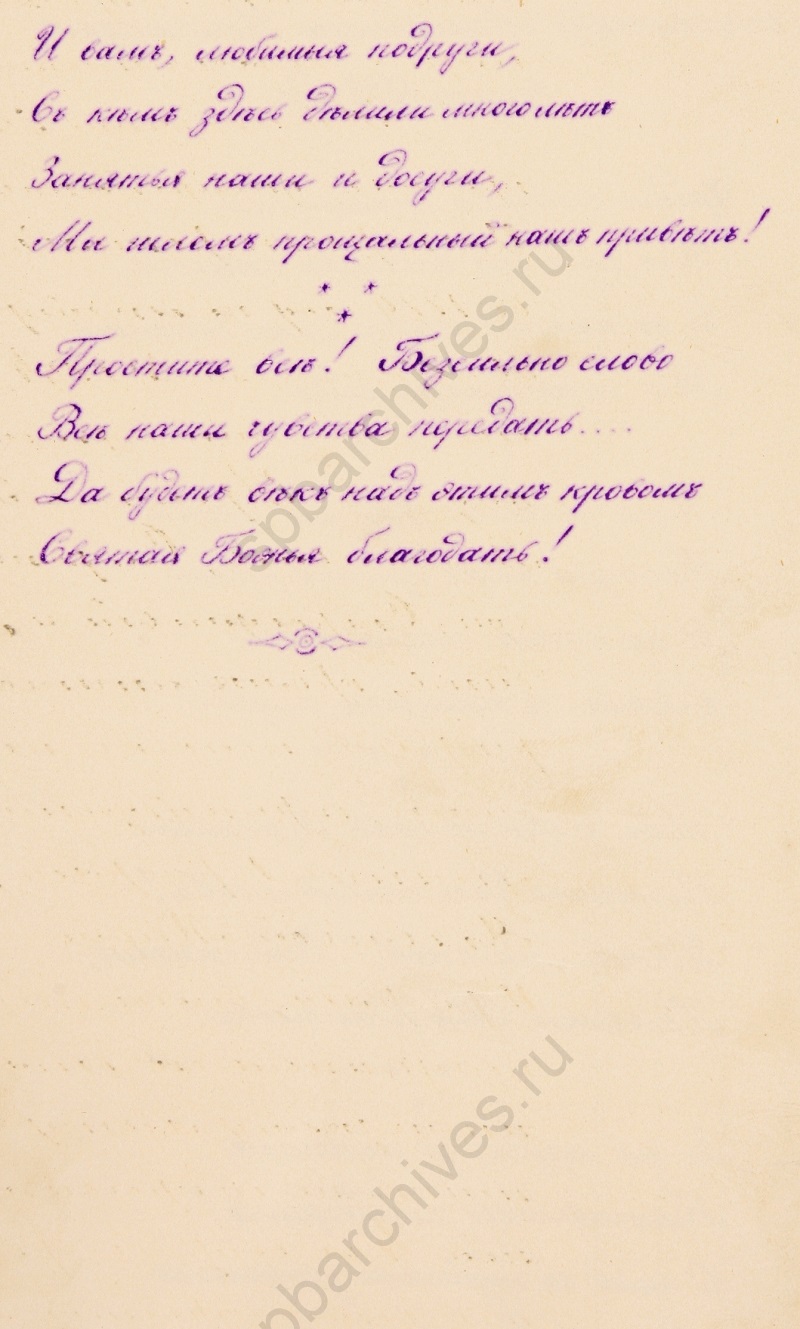 И вамъ, любимыя подруги,
Съ кѣмъ здѣсь дѣлили много лѣтъ
Занятья наши и досуги,
Мы шлемъ прощальный нашъ привѣтъ!
* *
*
Простите всѣ! Безсильно слово
Всѣ наши чувства передать....
Да будетъ вѣкъ надъ этимъ кровомъ
Святая Божья благодать!
spbarchives.ru
spbarchives.ru